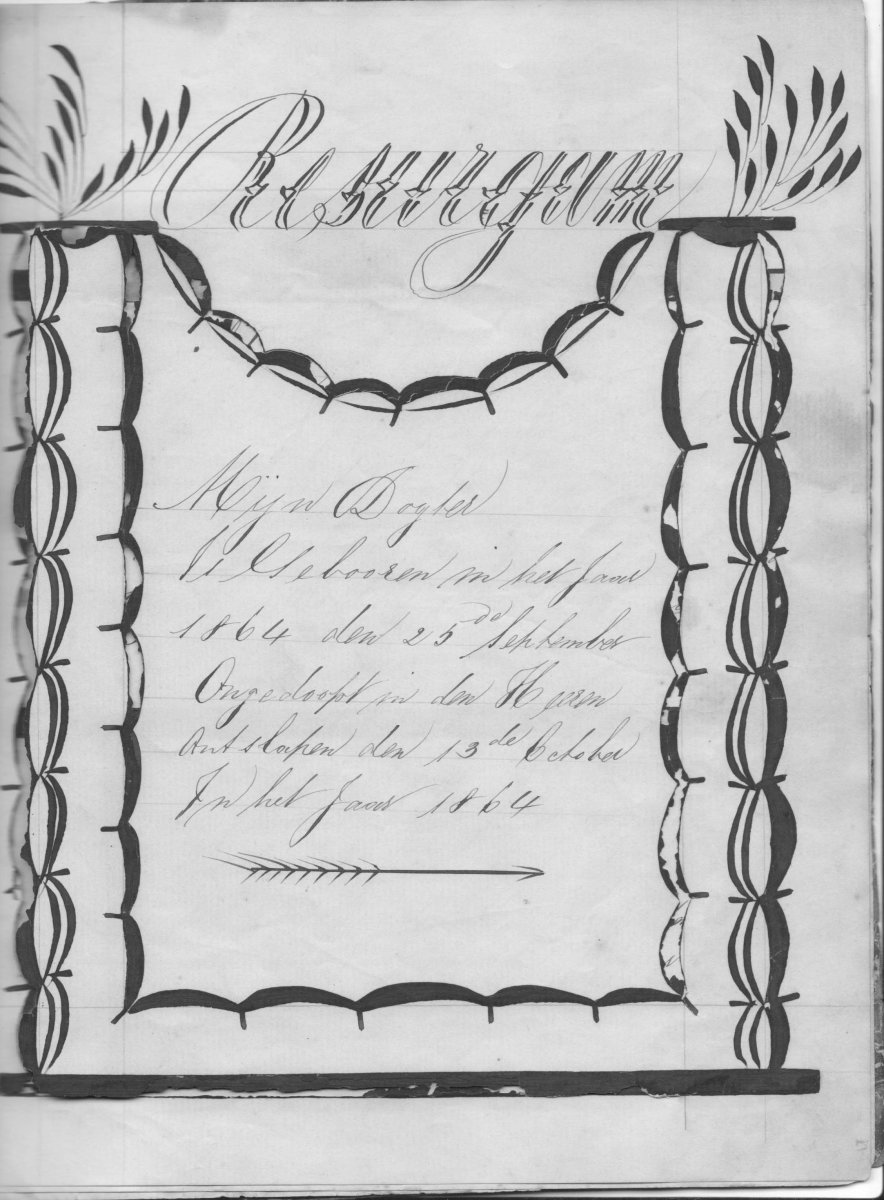 Resurgam
Mijn Dogter
Is Gebooren in het Jaar
1864 den 25de September
Ongedoopt in den Heeren
ontslapen den 13de October
In het Jaar 1864